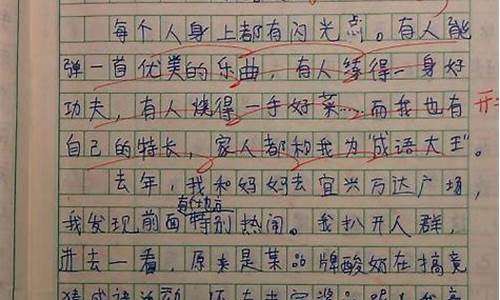 每个人身上都有闪光点。有人能
弹一首优美的乐曲，有人练得一身好
功夫，有人烧得一手好菜……而我也有 开
自己的特长，家人都和我为“成语大王”。
去年，我和妈妈去宜兴万达广场，
我发现前面有个地方特别热闹。我扒开人群，
进去一看，原来是某品牌酸奶在搞竞
猜成语活动